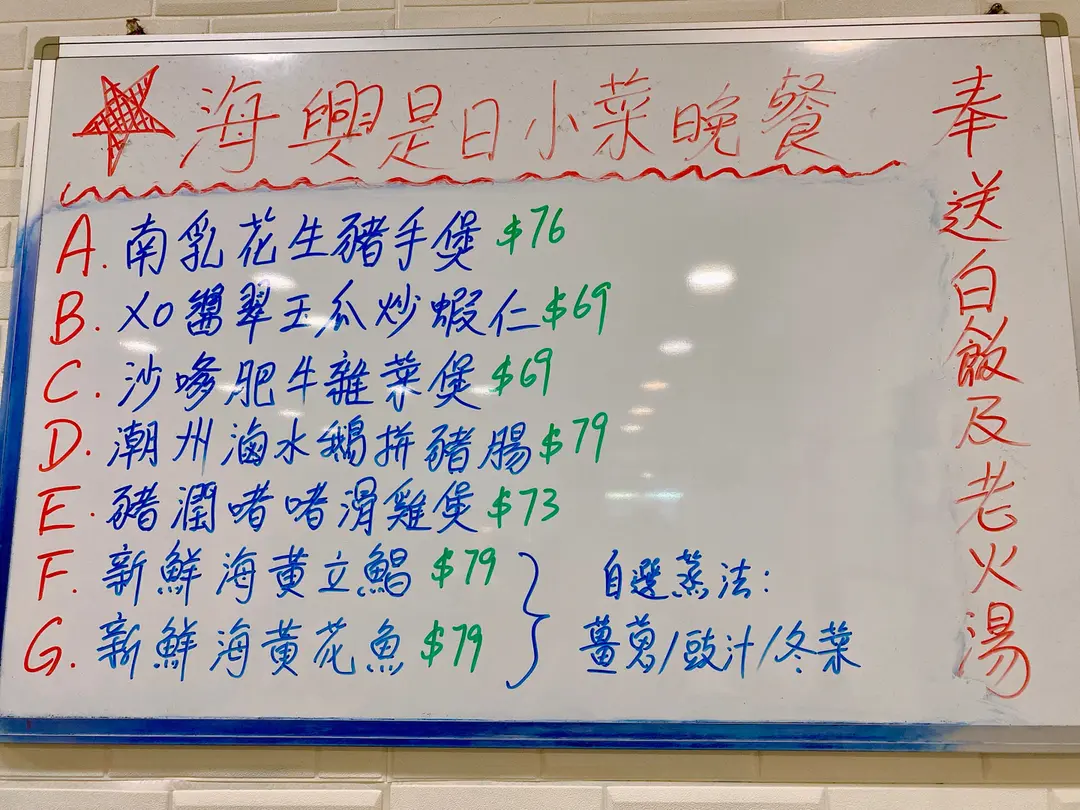 海興是日小菜晚餐
A. 南乳花生豬手煲 $76
B. XO醬翠玉瓜炒蝦仁 $69
C. 沙嗲肥牛雜菜煲 $69
D. 潮州滷水鵝拼豬腸 $79
E. 豬潤啫啫滑雞煲 $73
F. 新鮮海黃立鯧 $79
G. 新鮮海黃花魚 $79
自選蒸法:
薑蔥/豉汁/冬菜
奉送白飯及老火湯